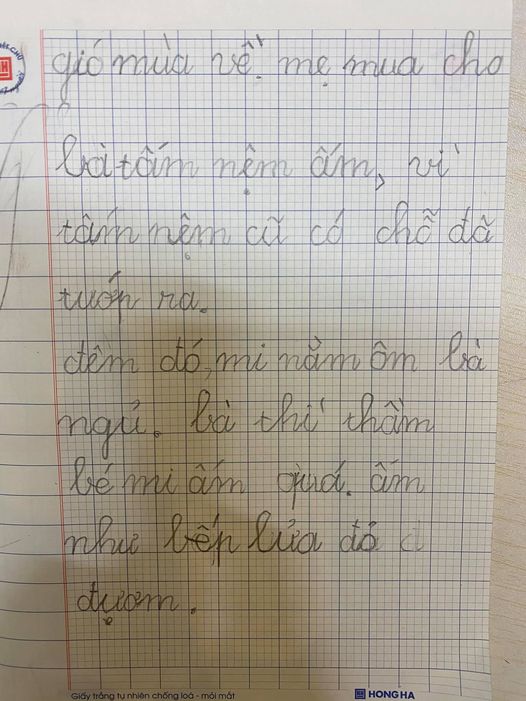 gió mùa về. mẹ mua cho
bà tấm nệm ấm, vì
tấm nệm cũ có chỗ đã
tướp ra.
đêm đó, mi nằm ôm bà
ngủ. bà thì thầm
bé mi ấm quá. ấm
như bếp lửa đỏ
đượm.
Giấy trắng tự nhiên chống loá - mỏi mắt
HONG HA